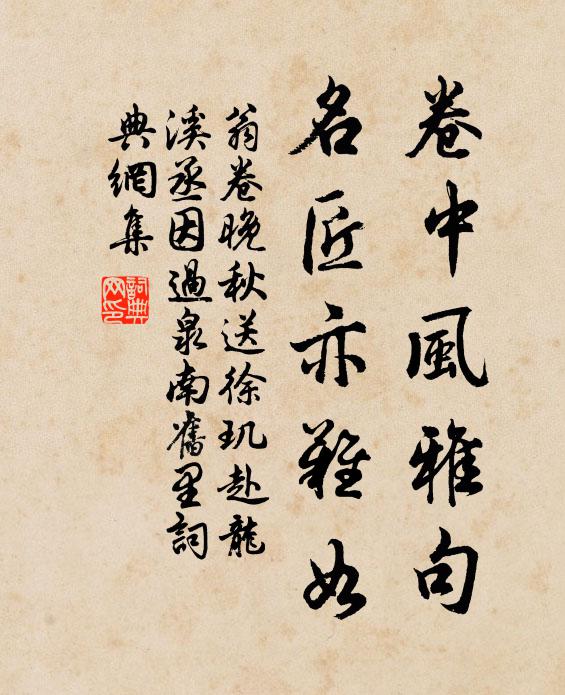 卷中風雅句
名匠亦難如
翁卷晚秋送徐玑赴龍
溪丞因過泉南舊里詞
典網集
詞典
网印